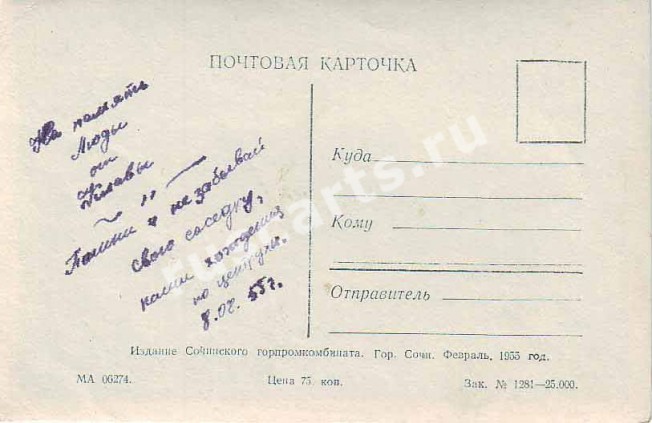 ПОЧТОВАЯ КАРТОЧКА
На память
Люды
от
Клавы
Помни и не забывай
свою соседку,
наши хождения
по центрухе.
8.02. 55 г.
Куда
Кому
Отправитель
Издание Сочинского горпромкомбината. Гор. Сочи. Февраль, 1955 год.
МА 06274.
Цена 75 коп.
Зак. № 1281—25.000.